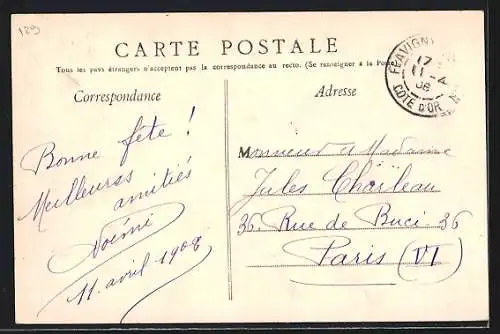 129
CARTE POSTALE
Tous les pays étrangers n'acceptent pas la correspondance au recto. (Se renseigner à la Poste
Correspondance
Adresse
FLAVIGNY
17
11 - 4
08
COTE D'OR
Bonne fête !
Meilleures amitiés
Noémi
11 avril 1908
Monsieur et Madame
Jules
36. Rue de Buci 36
Paris (VI)